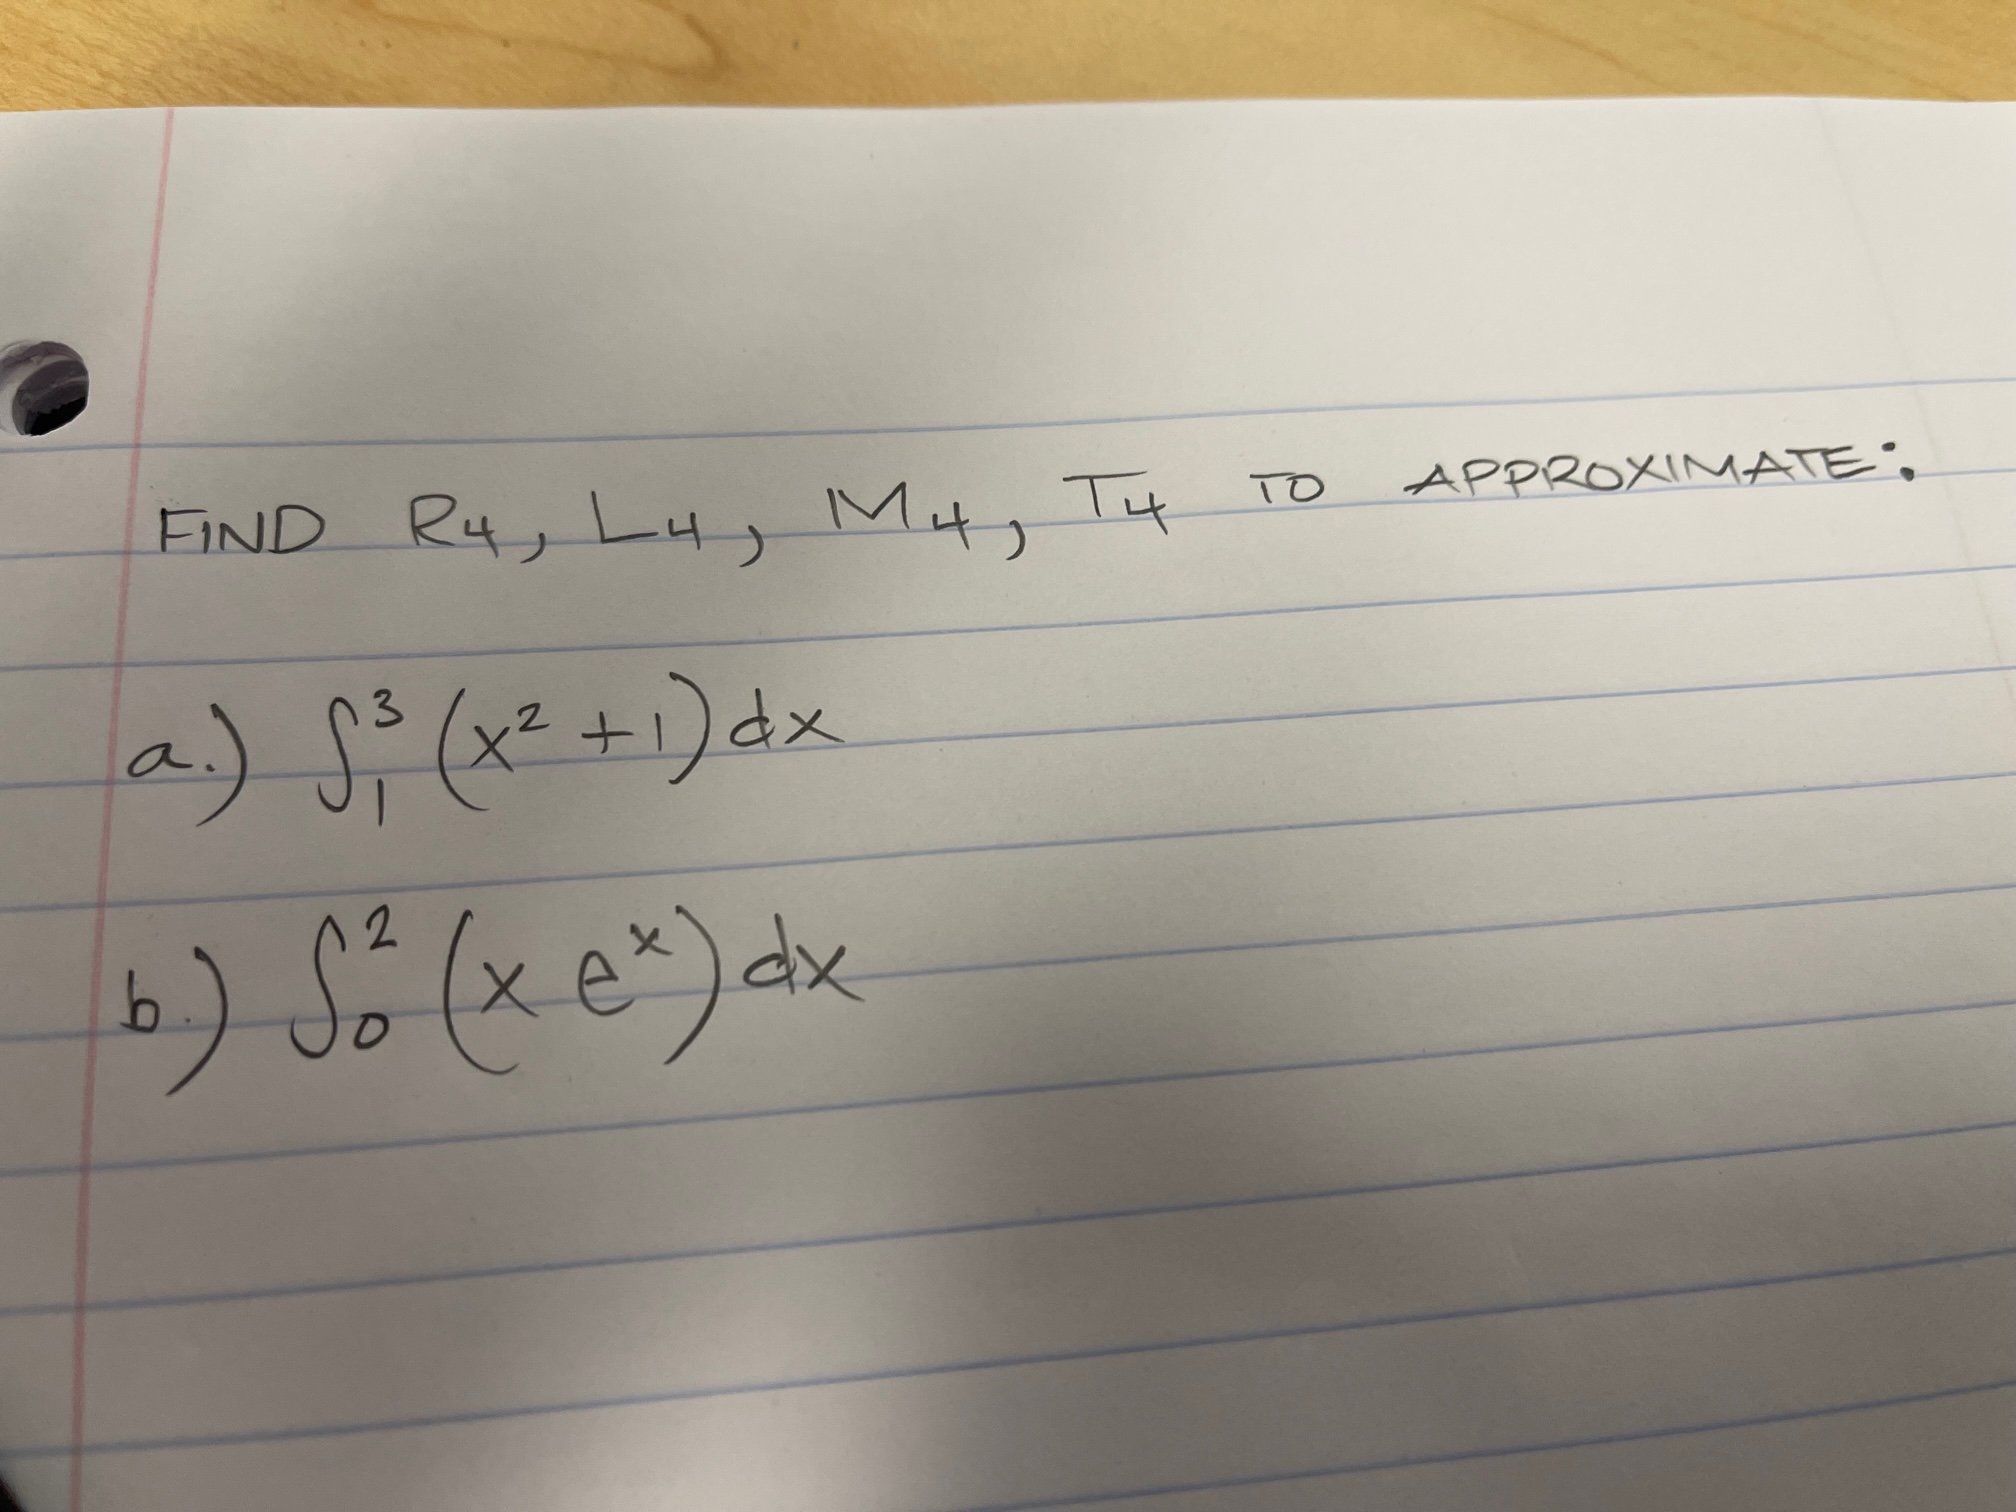 FIND R4, L4, M4, T4 TO APPROXIMATE:
a.) ∫₁³ (x² + 1) dx
b.) ∫₀² (x eˣ) dx